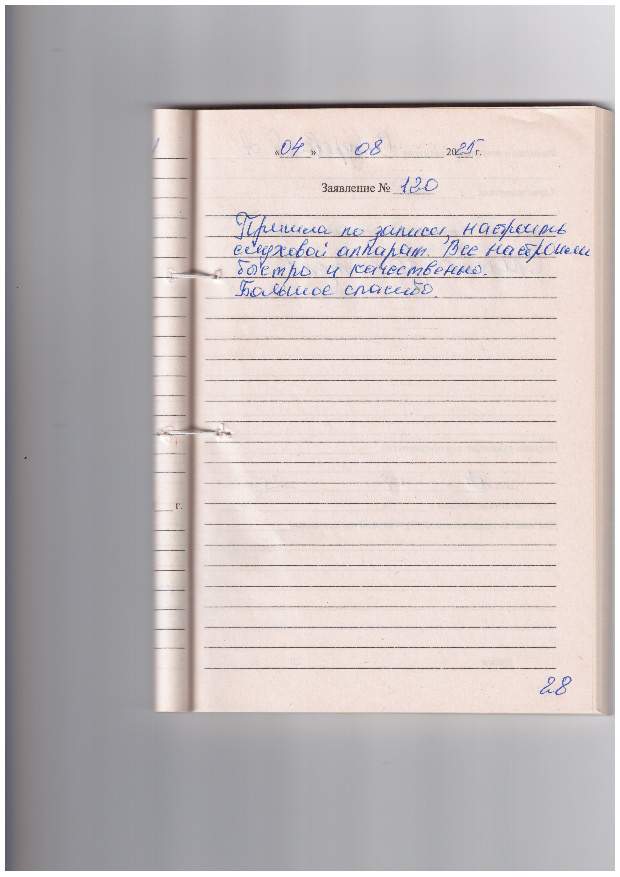 «04» 08 2025 г.
Заявление № 120
Пришла по записи, настроить
слуховой аппарат. Все настроили
быстро и качественно.
Большое спасибо.
г.
28